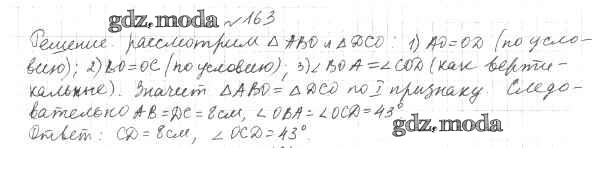 gdz.moda №163
Решение. рассмотрим △ABO и △DCO: 1) AO=OD (по усло-
вию); 2) BO=OC (по условию); 3) ∠BOA=∠COD (как верти-
кальные). Значит △ABO=△DCO по I признаку. Следо-
вательно AB=DC=8см, ∠OBA=∠OCD=43°
gdz.moda
Ответ: CD=8см, ∠OCD=43°.